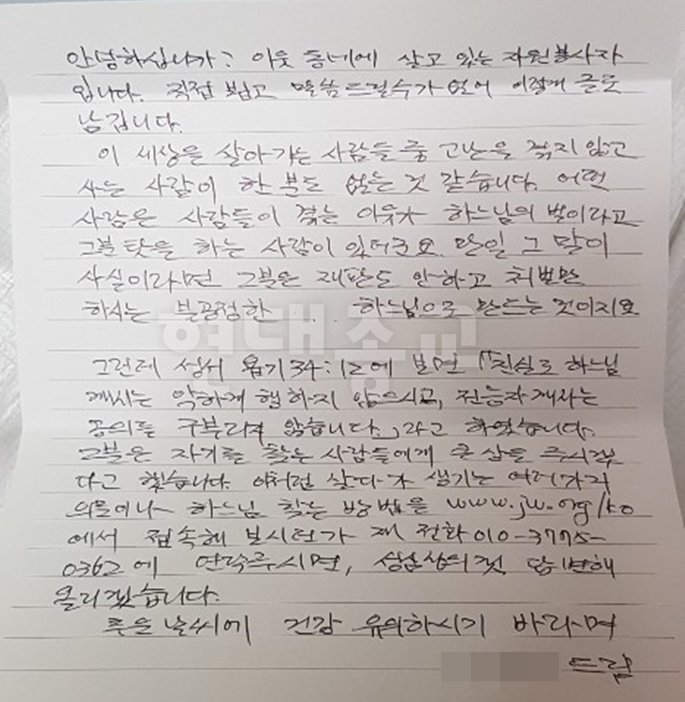 안녕하십니까? 이웃 동네에 살고 있는 자원봉사자
입니다. 직접 뵙고 말씀드릴수가 없어 이렇게 글로
남깁니다.
이 세상을 살아가는 사람들 중 고난을 겪지 않고
사는 사람이 한 분도 없는 것 같습니다. 어떤
사람은 사람들이 겪는 이유가 하느님의 벌이라고
그분 탓을 하는 사람이 있더군요. 만일 그 말이
사실이라면 그분은 재판도 안하고 처벌만
하시는 불공정한 . . . 하느님으로 만드는 것이지요
현대종교
그런데 성서 욥기 34:12에 보면 「진실로 하느님
께서는 악하게 행하지 않으시고, 전능자께서는
공의를 구부리지 않습니다.」라고 하였습니다.
그분은 자기를 찾는 사람들에게 큰 상을 주시겠
다고 했습니다. 이처럼 살다가 생기는 여러가지
의문이나 하느님 찾는 방법을 www.jw.org/ko
에서 접속해 보시던가 제 전화 010-3775-
0362에 연락주시면, 성심성의껏 답변해
올리겠습니다.
추운 날씨에 건강 유의하시기 바라며
드림